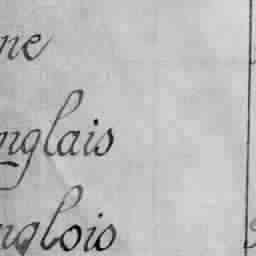 ne
nglais
nglois